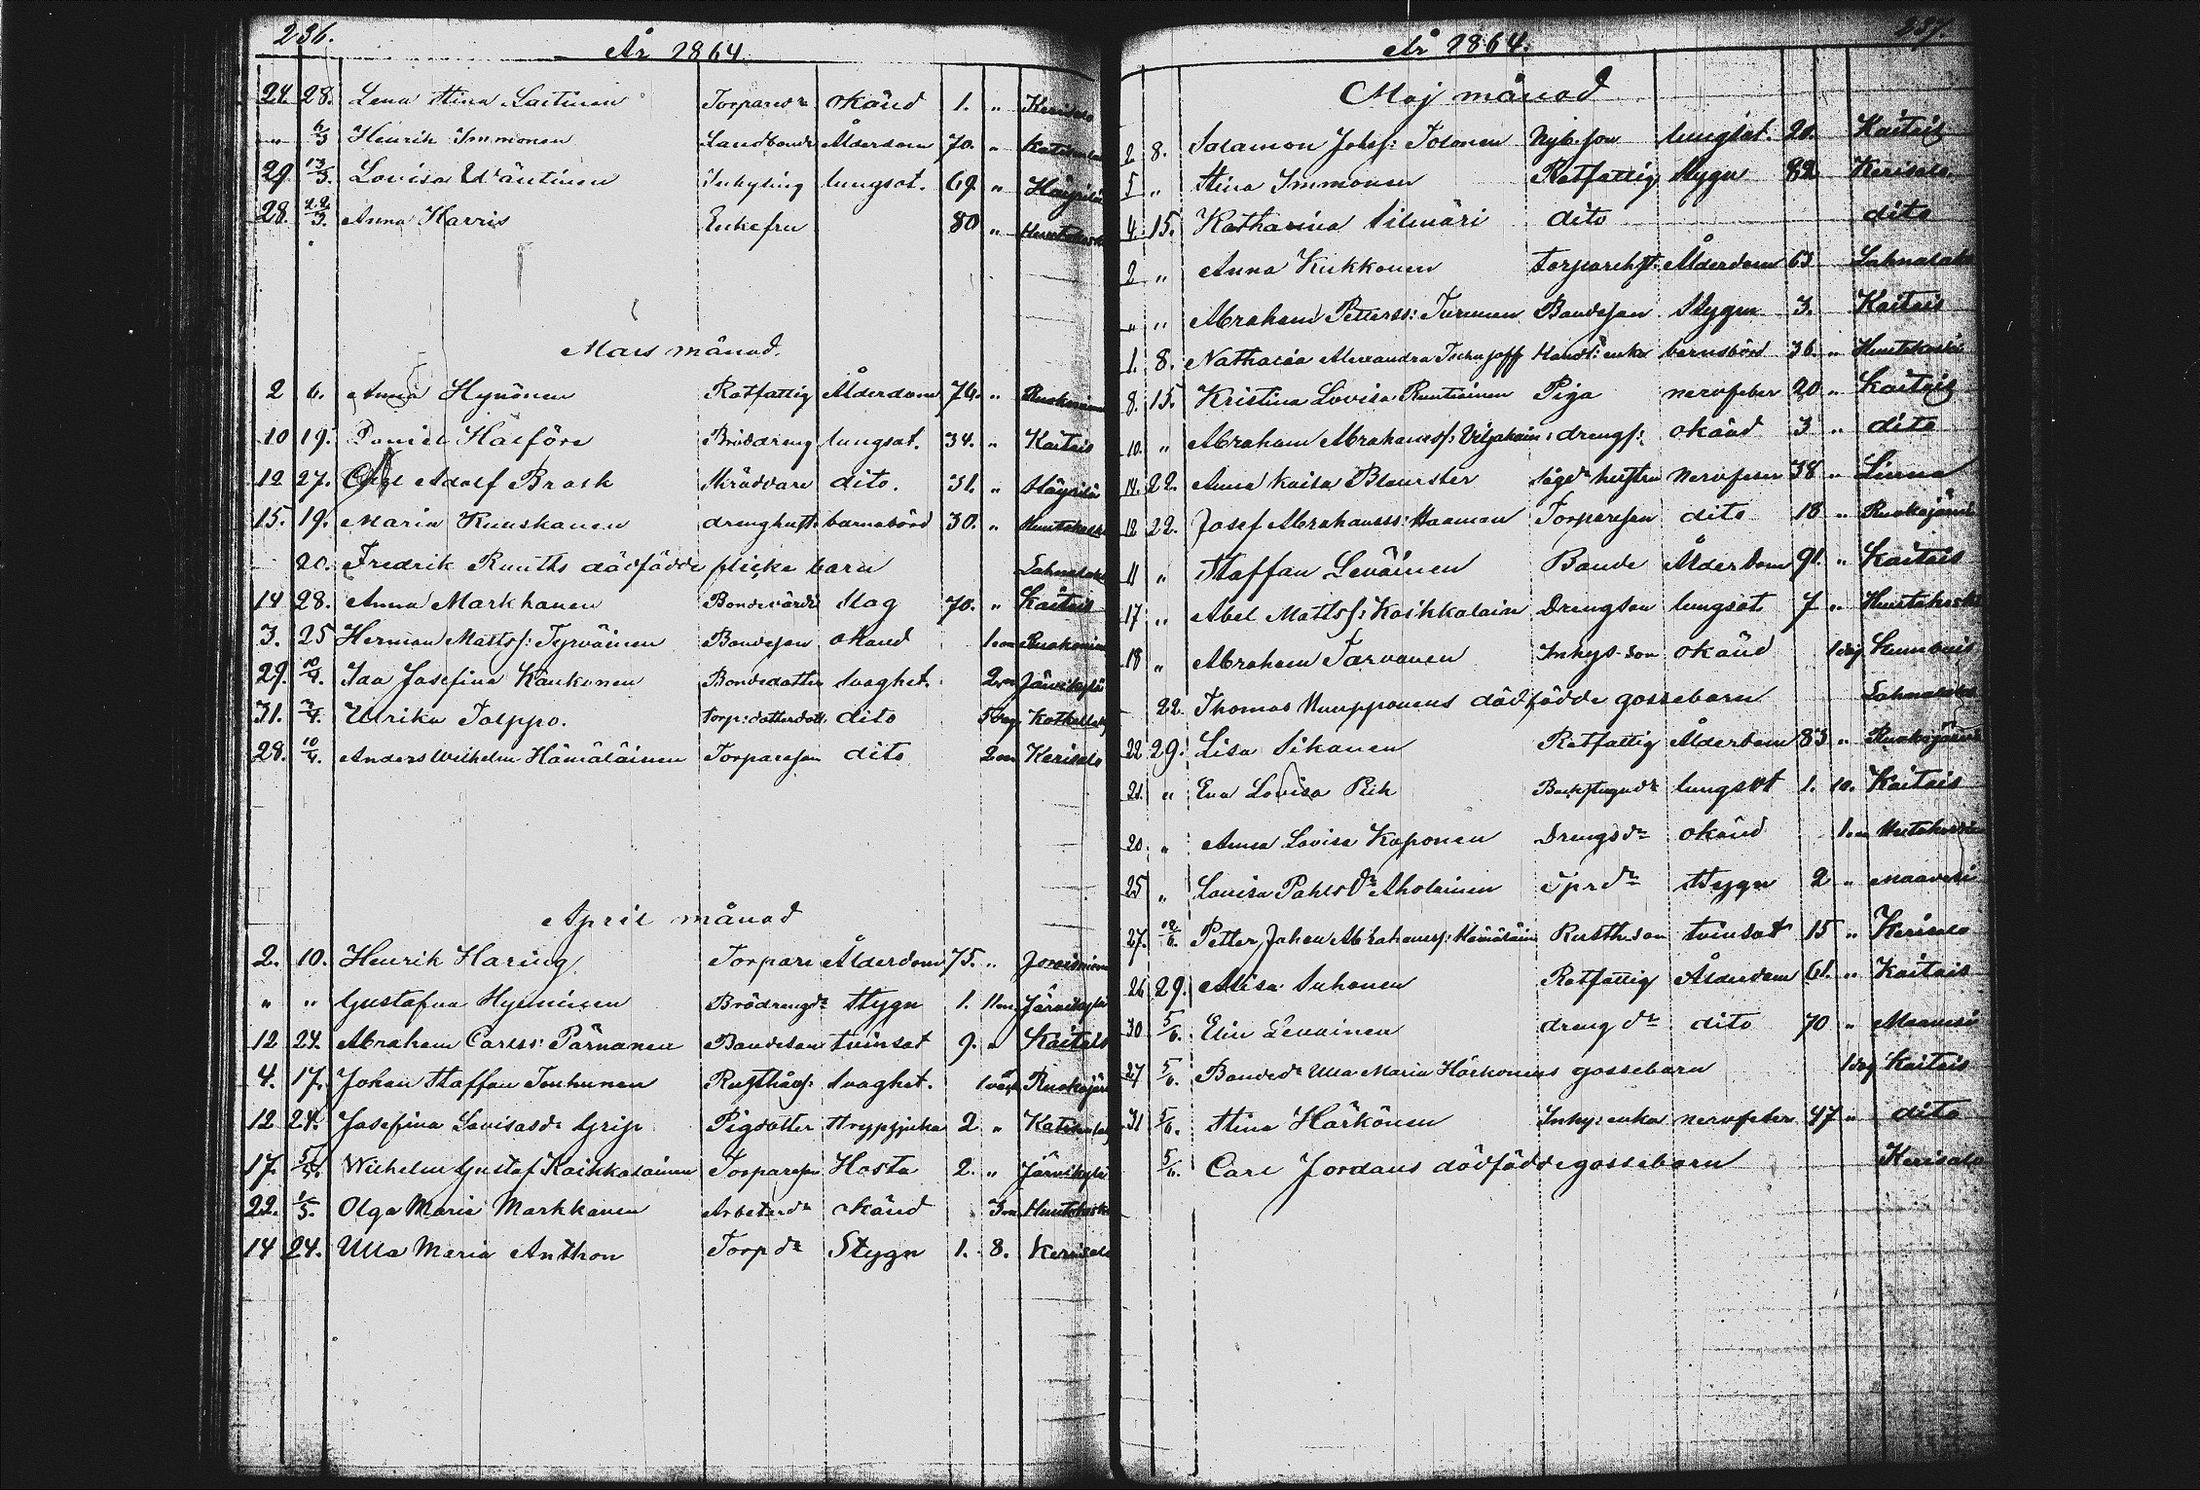 236.
År 1864.
24. 28. Lena Stina Laitinen Torpared:r okänd 1. " Kerisalo
" 6/3 Henrik Immonen Landbonde Ålderdom 70. "
29 13/3. Lovisa Väntinen Inhysing lungsot. 69 " Häyrilä
28. 28/3. Anna Harris Enkefru 80 " Huutokoski
Mars månad.
2 6. Anna Hynönen Rotfattig Ålderdom 76. "
10 19. Daniel Hälförs Bröddreng lungsot. 34. " Kaitais
12 27. Carl Adolf Brask Skräddare dito. 31. " Häyrilä
15. 19. Maria Kuuskanen drenghust: barnsbörd 30. " Huutokoski
20. Fredrik Ruuths dödfödde flicke barn Lahnalaks
14 28. Anna Markkanen Bondevärd: slag 70. " Kaitais
3. 25 Herman Matts: Tyrväinen Bondeson okänd 1 m
29. 10/4. Ida Josefina Kaukonen Bondedotter svaghet. 2 m Järvikylä
31. Ulrika Tolppo. torp: dotterdott. dito 5 dag.
28. 10/4. Anders Wilhelm Hämäläinen Torpareson dito 2 m Kerisalo
April månad
2. 10. Henrik Haring Torpare Ålderdom 75. "
" " Gustafva Hynninen Brödrengd:r Stygn 1. 11 m Järvikylä
12 24. Abraham Carlss: Pärnänen Bondeson tvinsot 9. " Kaitais
4. 17. Johan Staffan Tenhunen Rusthås: svaghet. Ruokojär
12 24. Josefina Lovisasd:r Grip Pigdotter Strypsjuka 2 "
17. Wilhelm Gustaf Kaikkalainen Torpareson Hosta 2. " Järvikylä
22. 1/5. Olga Maria Markkanen Arbetared:r okänd 3 m Huutokoski
14 24. Ulla Maria Anthon Torp d:r Stygn 1. 8. Kerisalo
237.
År 1864.
Maj månad
2 8. Salamon Josefs: Tolonen Nyb. son lungsot. 20. Kaitais
5 " Stina Immonen Rotfattig Stygn 82 Kerisalo
4. 15. Katharina Silmäri dito dito
2 " Anna Kukkonen torparehst: Ålderdom 63 Lahnalaks
" " Abraham Petterss: Turunen Bondeson Stygn 3. Kaitais
1. 8. Nathalia Alexandra enka barnsbörd 36. " Huutokoski
8. 15. Kristina Lovisa Ruutiainen Piga nervfeber 20 " Kaitais
10. " Abraham Abrahamss: Viljakain: drengs: okänd 3 " dito
14. 22. Anna Kaisa Blomster hustru Nervfeber 38 " Linna
12 22. Josef Abrahamss: Haaman Torpareson dito 18 " Ruokojärvi
11 " Staffan Leväinen Bonde Ålderdom 91. " Kaitais
17 " Abel Matts: Kaihkalain Drengson lungsot 7 " Huutokoski
18 " Abraham Tarvanen Inhys. son okänd 1 dag
22 Thomas Nuupponens död födde gossebarn Lahnalaks
22 29. Lisa Sikanen Rotfattig Ålderdom 83 " Ruokojärvi
21. " Eva Lovisa Pich lungsot 1. 10. Kaitais
20. " Anna Lovisa Koponen Drengsd:r okänd 1 m Huutokoski
25 " Lovisa Pahlsd:r Aholainen Stygn 2 " Maavesi
27. 12/6. Petter Johan Abrahamss: Hämäläin Rusth. son tvinsot 15 " Kerisalo
26 29. Alisa Suhonen Rotfattig Ålderdom 61. " Kaitais
30 5/6. Elin Levainen dreng d:r dito 70 " Maavesi
27 5/6. Bonded:r Ulla Maria Härkönens gossebarn 1 dag Kaitais
31 5/6. Stina Härkönen Inhys: enka nervfeber 47 " dito
5/6. Carl Jordans dödfödde gossebarn Kerisalo